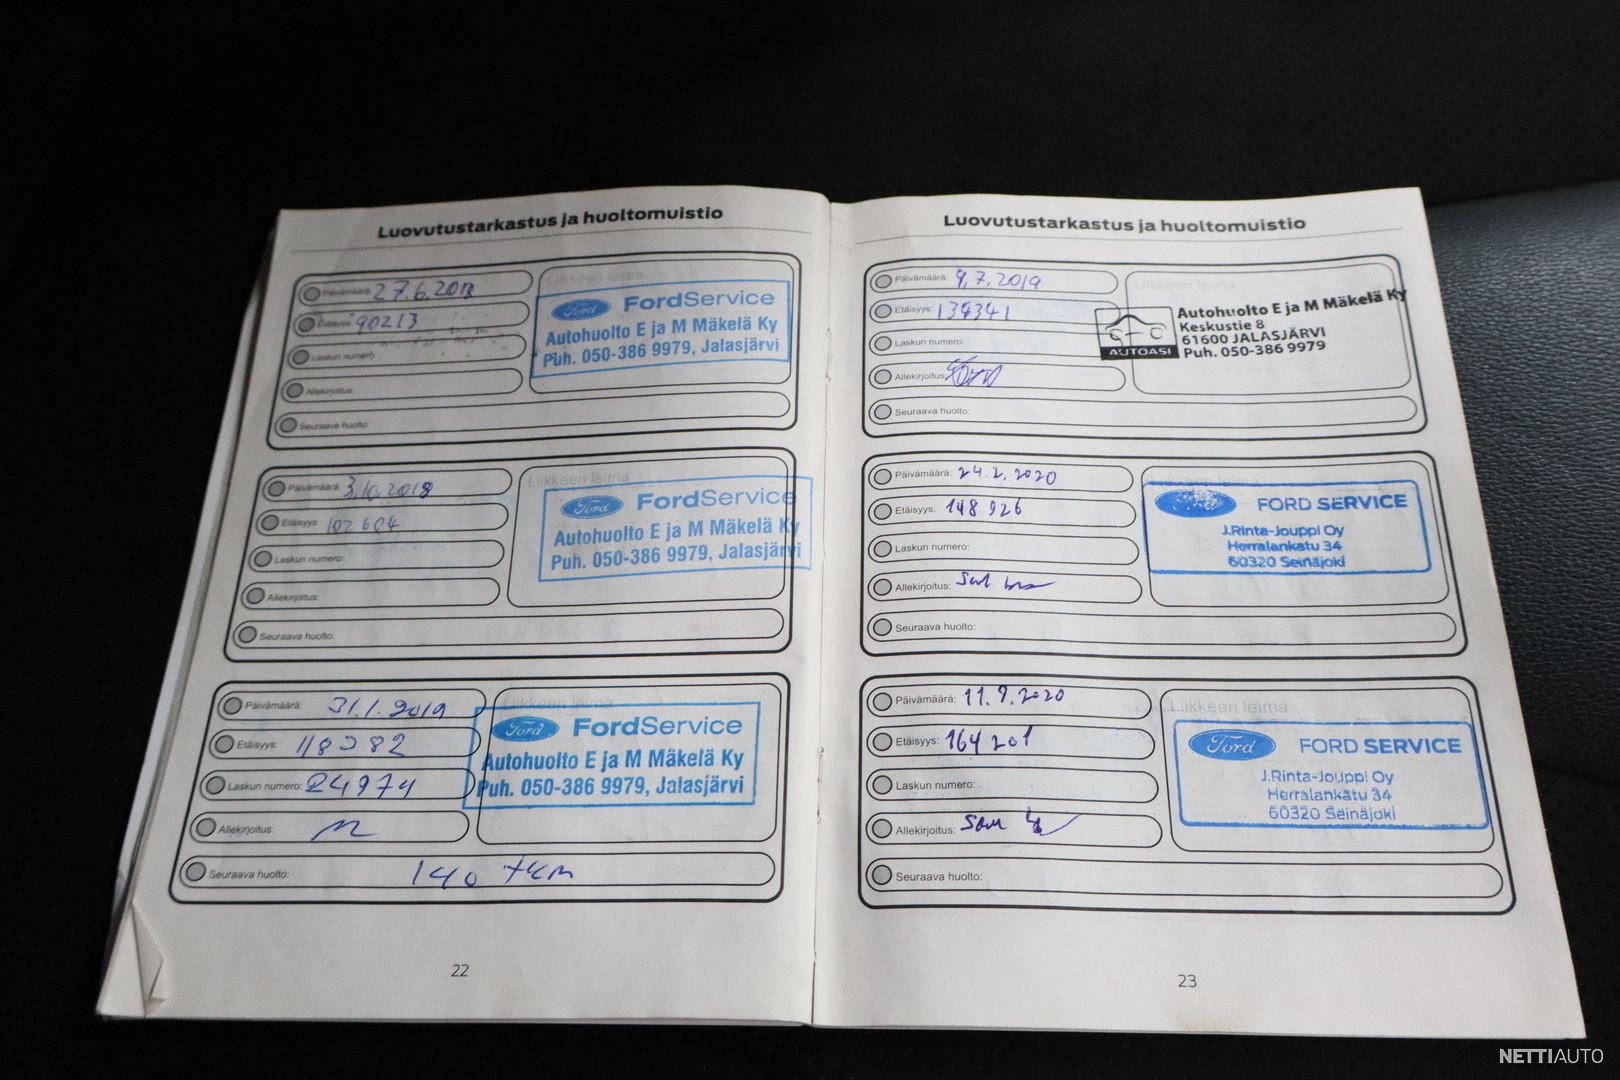 Luovutustarkastus ja huoltomuistio
Päivämäärä: 27.6.2018
Etäisyys: 90213
Laskun numero:
Allekirjoitus:
Seuraava huolto:
Liikkeen leima
Ford FordService
Autohuolto E ja M Mäkelä Ky
Puh. 050-386 9979, Jalasjärvi
Päivämäärä: 3.10.2018
Etäisyys: 102604
Laskun numero:
Allekirjoitus:
Seuraava huolto:
Liikkeen leima
Ford FordService
Autohuolto E ja M Mäkelä Ky
Puh. 050-386 9979, Jalasjärvi
Päivämäärä: 31.1.2019
Etäisyys:
Laskun numero: 24974
Allekirjoitus:
Seuraava huolto: 140 tkm
Liikkeen leima
Ford FordService
Autohuolto E ja M Mäkelä Ky
Puh. 050-386 9979, Jalasjärvi
22
Luovutustarkastus ja huoltomuistio
Päivämäärä: 9.7.2019
Etäisyys: 134341
Laskun numero:
Allekirjoitus:
Seuraava huolto:
Liikkeen leima
AUTOASI
Autohuolto E ja M Mäkelä Ky
Keskustie 8
61600 JALASJÄRVI
Puh. 050-386 9979
Päivämäärä: 24.2.2020
Etäisyys: 148926
Laskun numero:
Allekirjoitus:
Seuraava huolto:
Liikkeen leima
Ford FORD SERVICE
J.Rinta-Jouppi Oy
Herralankatu 34
60320 Seinäjoki
Päivämäärä: 11.9.2020
Etäisyys: 164201
Laskun numero:
Allekirjoitus:
Seuraava huolto:
Liikkeen leima
Ford FORD SERVICE
J.Rinta-Jouppi Oy
Herralankatu 34
60320 Seinäjoki
23
NETTIAUTO